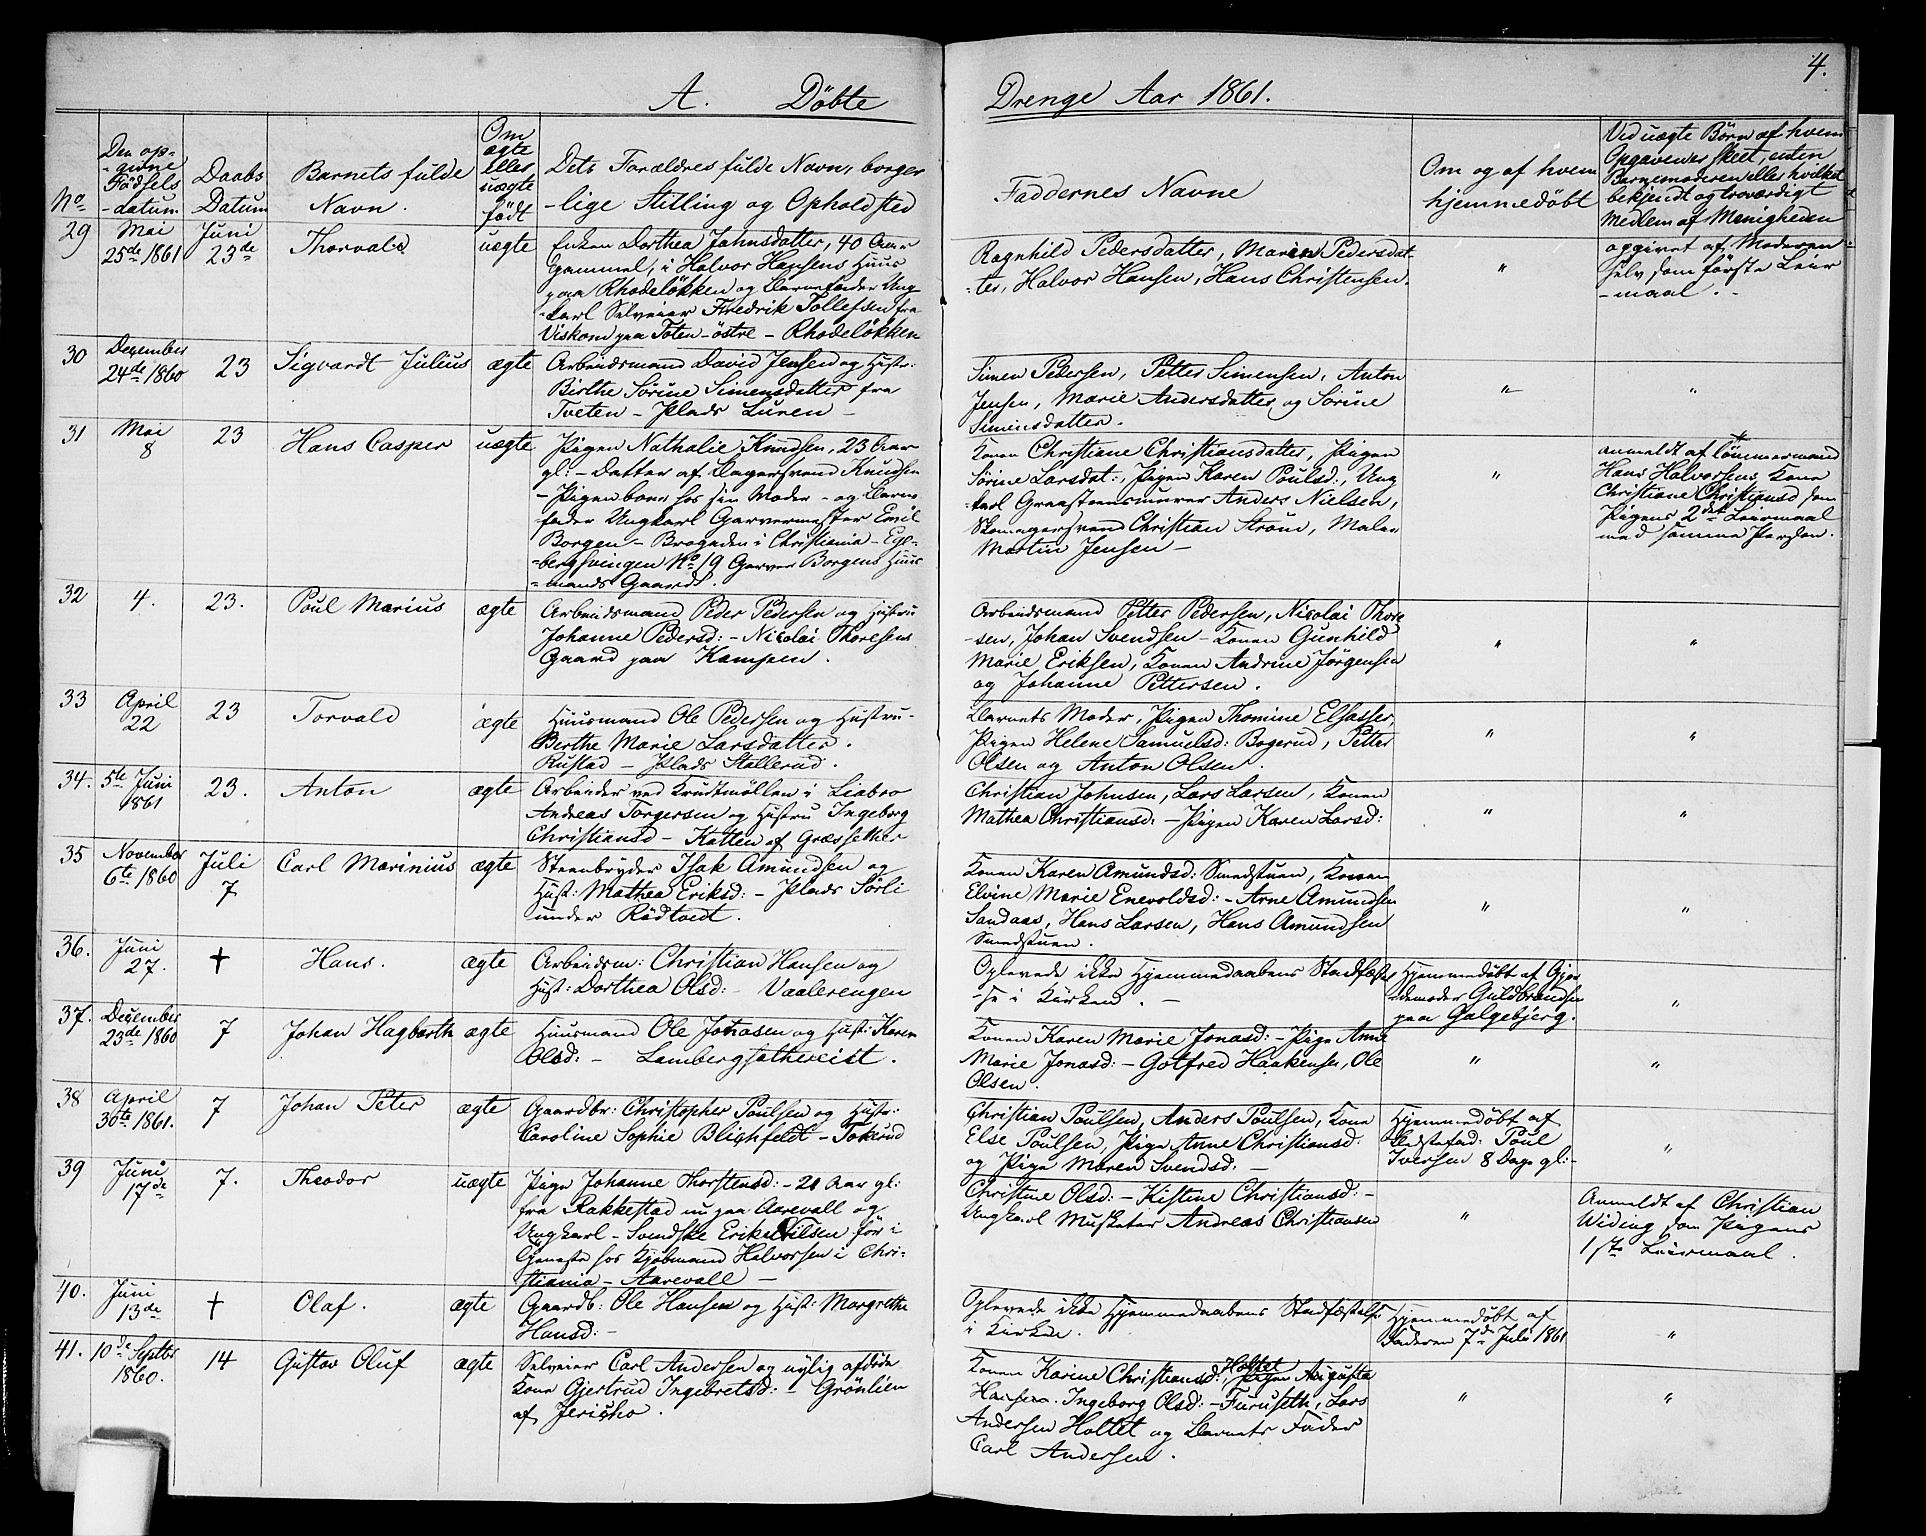 4.
A. Döbte Drenge Aar 1861.
No.
Den op-
-givne
Födsels
-datum
Daabs
Datum
Barnets fulde
Navn.
Om
ægte
eller
uægte
födt
Dets Forældres fulde Navn, borger
-lige Stilling og Opholdsted
Faddernes Navne
Om og af hvem
hjemmedöbt
Ved uægte Börn af hvem
Opgaven er skeet, enten
Barnemoderen eller hvilket
bekjendt og troværdigt
Medlem af Menigheden
29
Mai
25de 1861
Juni
23de
Thorvald
uægte
Enken Dorthea Johnsdatter, 40 Aar
Gammel, i Halvor Hansens Huus
paa Rhodelökken og Barnefader Ung-
-karl Selveier Fredrik Tollefsen fra
paa Toten-östre - Rhodelökken
Ragnhild Pedersdatter, Maren Pedersdat-
-ter, Halvor Hansen, Hans Christensen.
"
opgivet af Moderen
selv som förste Leir
-maal. -
30
Dezember
24de 1860
23
Sigvardt Julius
ægte
Arbeidsmand David Jensen og Hustr:
Birthe Sörine Simensdatter fra
Tveten - Plads Luren -
Simen Pedersen, Petter Simensen, Anton
Jensen, Marie Andersdatter og Sörine
Simensdatter.
"
"
31
Mai
8
23
Hans Casper
uægte
Pigen Nathalie Knudsen, 23 Aar
gl: - Datter af Bagersvend Knudsen
- Pigen boer hos sin Moder - og Barne
fader Ungkarl Garvermester Emil
Borgen - Brogaden i Christiania - Ege-
bergsvingen No 19 Garver Borgens Huus
-mands Gaard.
Konen Christiane Christiansdatter, Pigen
Sörine Larsdat:, Pigen Karen Poulsd:, Ung
-karl Graasteensmurer Anders Nielsen,
Skomagersvend Christian Ström, Maler
Martin Jensen -
"
anmeldt af Tömmermand
Hans Halvorsens Kone
Christiane Christiansd som
Pigens 2det Leiermaal
med samme Person.
32
4.
23.
Poul Marius
ægte
Arbeidsmand Peder Pedersen og Hustru
Johanne Pedersd: - Nicolai Thoresens
Gaard paa Kampen.
Arbeidsmand Petter Pedersen, Nicolai Thore
-sen, Johan Svendsen - Konen Gunhild
Marie Eriksen, Konen Andrine Jörgensen
og Johanne Pettersen.
"
"
33
April
22
23
Torvald
ægte
Huusmand Ole Pedersen og Hustru-
Berthe Marie Larsdatter.
Rustad - Plads Stallerud.
Barnets Moder, Pigen Thomine Elsasser,
Pigen Helene Samuelsd: Bogerud, Petter
Olsen og Anton Olsen.
"
"
34.
5te Juni
1861
23.
Anton
ægte
Arbeider ved Krudtmöllen i Liabro
Andreas Torgersen og Hustru Ingeborg
Christiansd - Katten af
Christian Johnsen, Lars Larsen, Konen
Mathea Christiansd: - Pigen Karen Larsd:
"
"
35
November
6te 1860
Juli
7
Carl Marinius
ægte
Steenbryder Isak Amundsen og
Hust: Mathea Eriksd: - Plads Sörli
under Rödtvedt.
Konen Karen Amundsd: Smedstuen, Konen
Elvine Marie Enevoldsd: - Arne Amundsen
Sandaas, Hans Larsen, Hans Amundsen
Smedstuen.
"
"
36.
Juni
27.
†
Hans.
ægte
Arbeidsm: Christian Hansen og
Hust: Dorthea Olsd: - Vaalerengen
Oplevede ikke Hjemmedaabens Stadfæstel
-se i Kirken. -
Hjemmedöbt af Gjor
demoder Guldbrandsen
paa Galgebjerg.
"
37.
Dezember
23de 1860
7
Johan Hagbarth
ægte
Huusmand Ole Johnsen og Hust: Karen
Olsd: -
Konen Karen Marie Jonasd: - Pige Anne
Marie Jonasd: - Gotfred Haakensen, Ole
Olsen.
"
"
38
April
30te 1861.
7
Johan Peter
ægte
Gaardbr: Christopher Poulsen og Hustr:
Caroline Sophie Blighfeldt - Tokerud
Christian Poulsen, Anders Poulsen, Kone
Else Poulsen, Pige Anne Christiansd:
og Pige Maren Svendsd: -
Hjemmedöbt af
Bedstefad: Poul
Iversen 8 Dage gl:-
"
39
Juni
17de
7.
Theodor
uægte
Pige Johanne Thorstensd: - 21 Aar gl:
fra Rakkestad nu paa Aarevall og
Ungkarl - Svendske Erik Nilsen för i
tjeneste hos Kjöbmand Halvorsen i Chri-
stiania - Aarevall -
Christine Olsd: - Kistine Christiansd: -
Ungkarl Musketer Andreas Christiansen
"
Anmeldt af Christian
Widing som Pigens
1ste Leiermaal.
40.
Juni
13de
†
Olaf.
ægte
Gaardb: Ole Hansen og Hust: Margrethe
Hansd: -
Oplevede ikke Hjemmedaabens Stadfæstelse
i Kirken.
Hjemmedöbt af
Faderen 7de Juli 1861
"
41.
10de Septbr
1860.
14
Gustav Oluf
ægte
Selveier Carl Andersen og nylig afdöde
Kone Gjertrud Ingebretsd: - Grönlien
af Jeriko.
Konen Karine Christiansd: Holtet, Pigen Augusta
Hansen. Ingeborg Olsd: - Furuseth, Lars
Andersen Holtet og Barnets Fader
Carl Andersen.
"
"